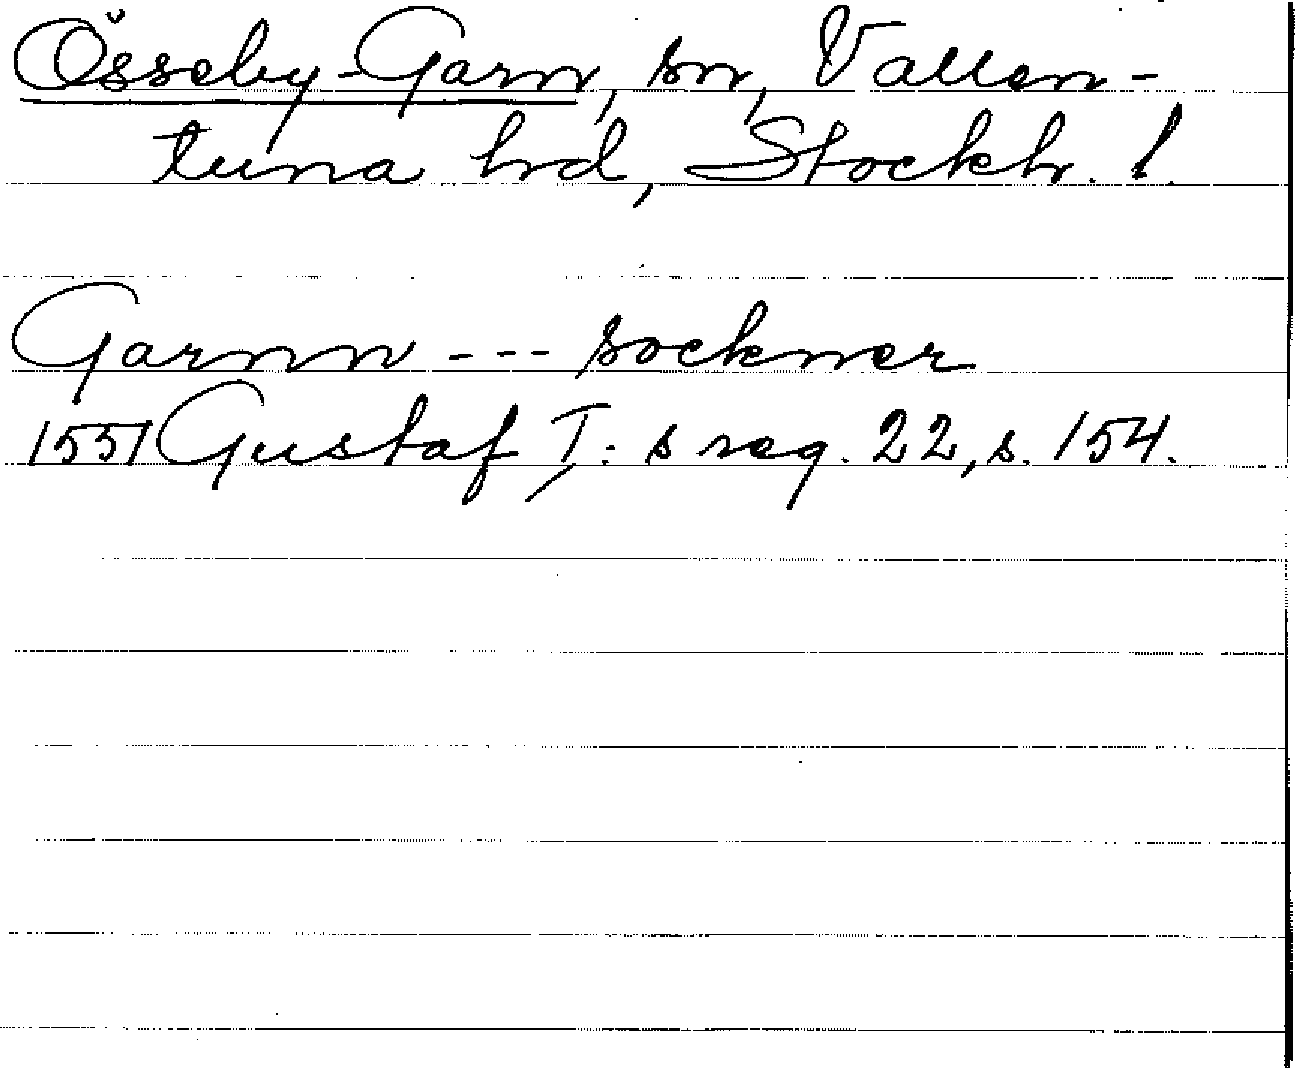 Össeby-Garn, sn, Vallen-
tuna hd, Stockh. l.
Garnn --- sockner
1551 Gustaf I:s reg. 22, s. 154.